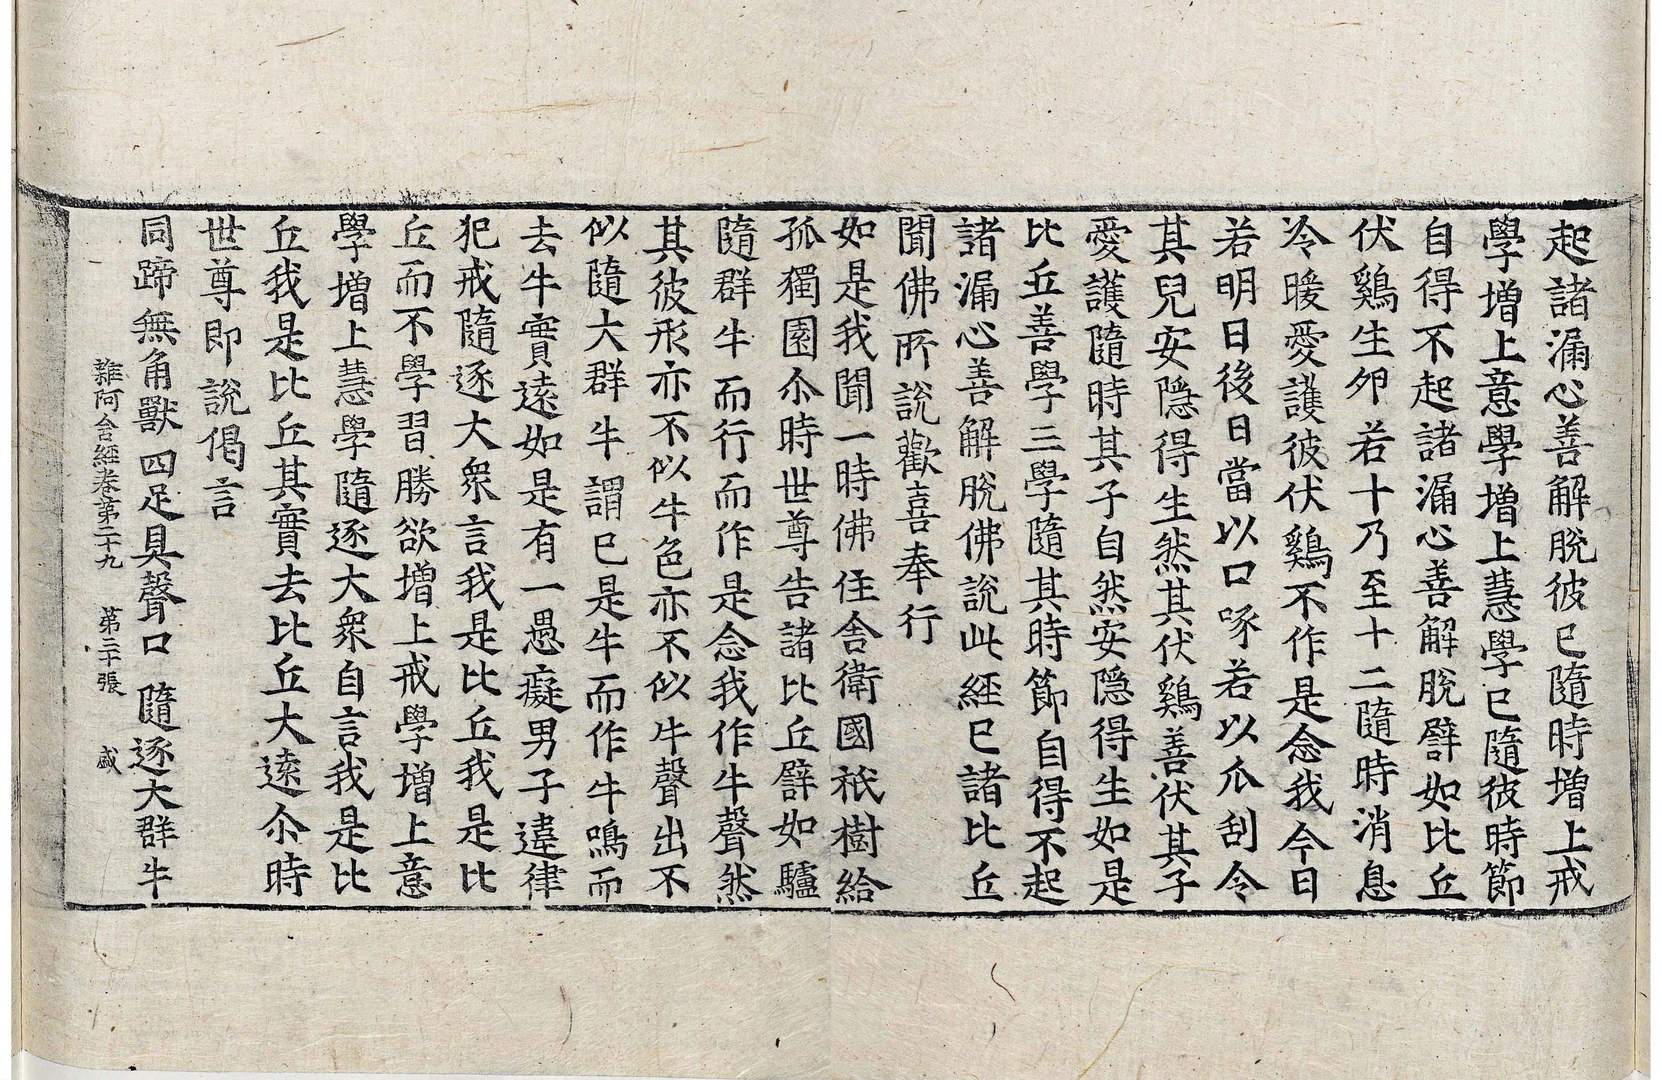 起諸漏心善解脫彼已隨時增上戒
學增上意學增上慧學已隨彼時節
自得不起諸漏心善解脫譬如比丘
伏鷄生卵若十乃至十二隨時消息
冷暖愛護彼伏鷄不作是念我今日
若明日後日當以口啄若以爪刮令
其兒安隱得生然其伏鷄善伏其子
愛護隨時其子自然安隱得生如是
比丘善學三學隨其時節自得不起
諸漏心善解脫佛說此經已諸比丘
聞佛所說歡喜奉行
如是我聞一時佛住舍衛國祇樹給
孤獨園尒時世尊告諸比丘譬如驢
隨群牛而行而作是念我作牛聲然
其彼形亦不似牛色亦不似牛聲出不
似隨大群牛謂已是牛而作牛鳴而
去牛實遠如是有一愚癡男子違律
犯戒隨逐大衆言我是比丘我是比
丘而不學習勝欲增上戒學增上意
學增上慧學隨逐大衆自言我是比
丘我是比丘其實去比丘大遠尒時
世尊即說偈言
同蹄無角獸四足具聲口 隨逐大群牛
雜阿含經卷第二十九 第二十張 盛